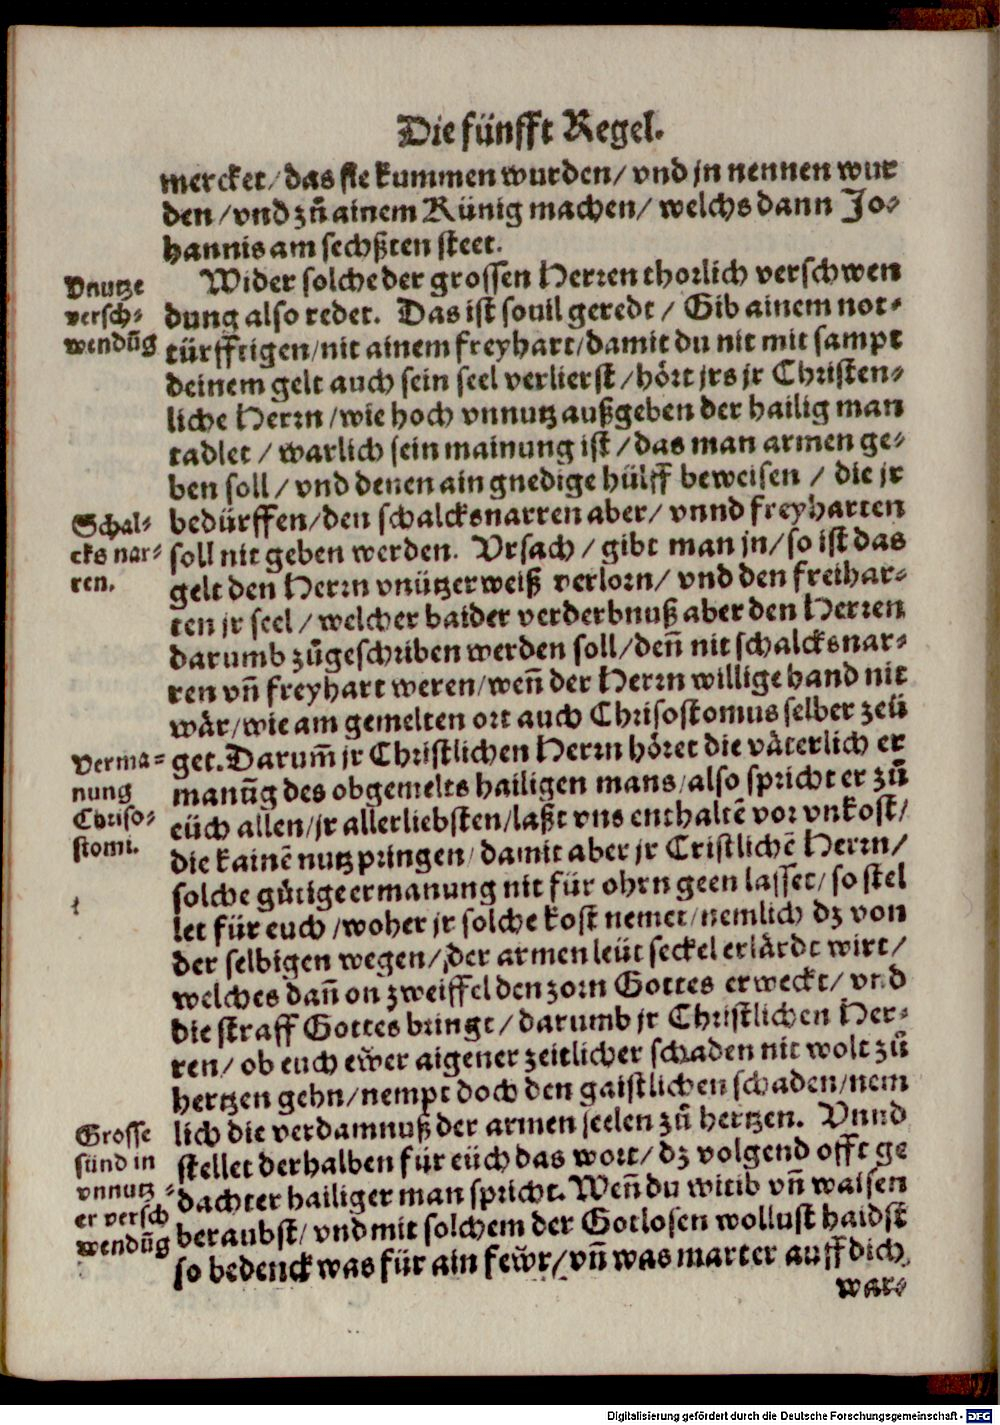 Die fünfft Regel.
mercket/ das sie kummen wurden/ vnd jn nennen wur
den/ vnd zů ainem Künig machen/ welchs dann Jo⸗
hannis am sechßten steet.
Vnutze
versch⸗
wendūg
Wider solche der grossen Herren thorlich verschwen
dung also redet. Das ist souil geredt / Gib ainem not⸗
türfftigen/ nit ainem freyhart/ damit du nit mit sampt
deinem gelt auch sein seel verlierst / hört jrs jr Christen⸗
liche Herrn / wie hoch vnnutz außgeben der hailig man
tadlet / warlich sein mainung ist / das man armen ge⸗
ben soll / vnd denen ain gnedige hülff beweisen / die jr
Schal⸗
cks nar⸗
ren.
bedürffen/ den schalcksnarren aber/ vnnd freyharten
soll nit geben werden. Vrsach / gibt man jn/ so ist das
gelt den Herrn vnützer weiß verlorn/ vnd den freihar⸗
ten jr seel / welcher baider verderbnuß aber den Herren
darumb zůgeschriben werden soll/ deñ nit schalcksnar⸗
ren vñ freyhart weren/ weñ der Herrn willige hand nit
wår/ wie am gemelten ort auch Chrisostomus selber zeü
Verma⸗
nung
Chriso⸗
stomi.
get. Darum̄ jr Christlichen Herrn höret die våterlich er
manūg des obgemelts hailigen mans/ also spricht er zů
eüch allen/ jr allerliebsten/ laßt vns enthaltē vor vnkost/
die kainē nutz pringen/ damit aber jr Cristlichē Herrn/
solche gůtige ermanung nit für ohrn geen lasset/ so stel
let für euch / woher jr solche kost nemet/ nemlich dz von
der selbigen wegen/ der armen leüt seckel erlårdt wirt/
welches dañ on zweiffel den zorn Gottes erweckt/ vnd
die straff Gottes bringt/ darumb jr Christlichen Her⸗
ren/ ob euch ewer aigener zeitlicher schaden nit wolt zů
hertzen gehn/ nempt doch den gaistlichen schaden/ nem
Grosse
sünd in
vnnutz⸗
er versch
wendūg
lich die verdamnuß der armen seelen zů hertzen. Vnnd
stellet derhalben für eüch das wort/ dz volgend offt ge
dachter hailiger man spricht. Weñ du witib vñ waisen
beraubst/ vnd mit solchem der Gotlosen wollust haidst
so bedenck was für ain fewr/ vñ was marter auff dich
war⸗
Digitalisierung gefördert durch die Deutsche Forschungsgemeinschaft - DFG